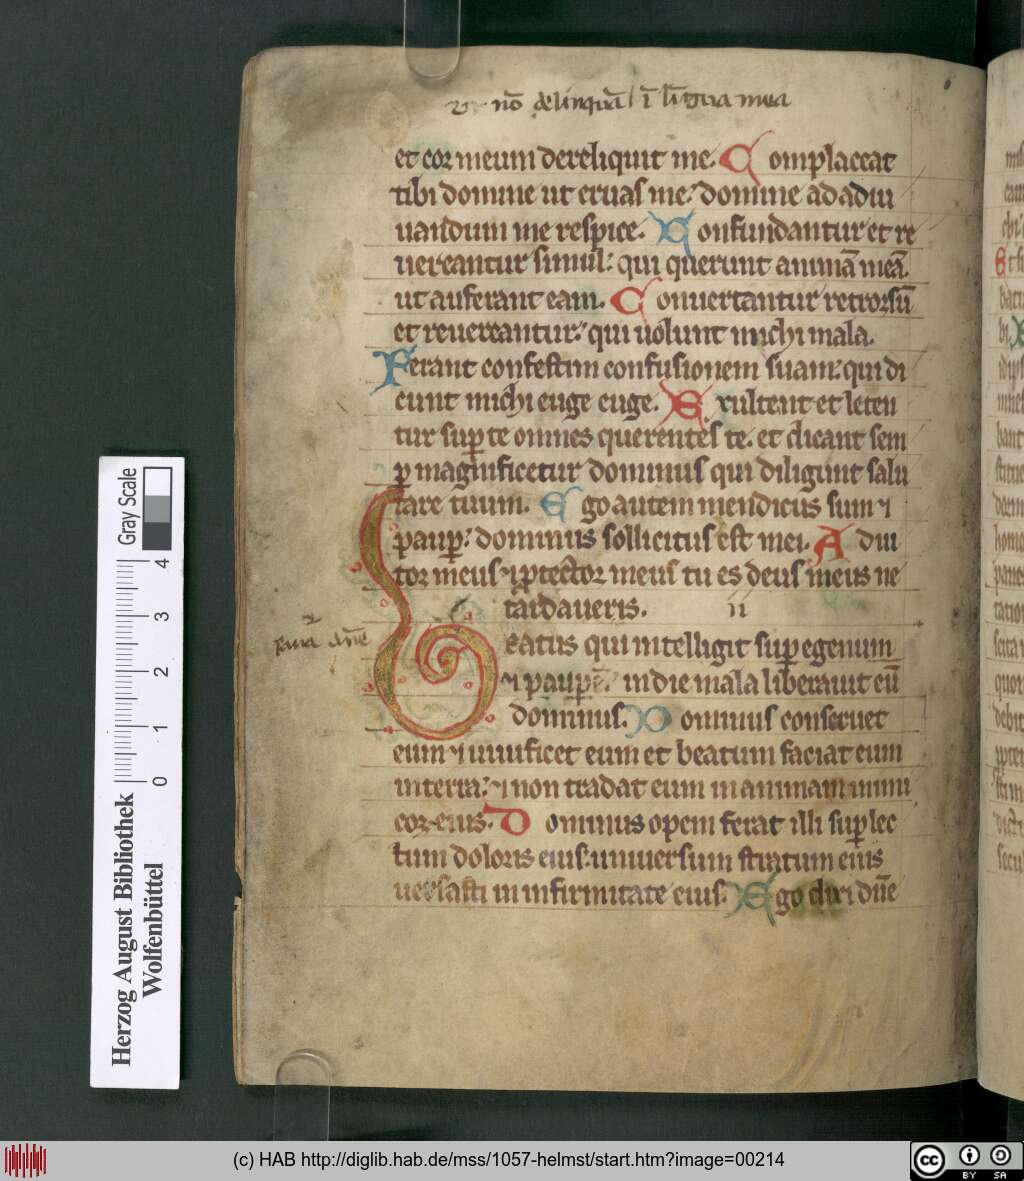 Ut nō delinquā ī līgua mea
et cor meum dereliquit me. Complaceat
tibi domine ut eruas me: domine ad adiu
uandum me respice. Confundantur et re
uereantur simul: qui querunt animā meā.
ut auferant eam. Conuertantur retrorsū
et reuereantur: qui uolunt michi mala.
Ferant confestim confusionem suam: qui di
cunt michi euge euge. Exultent et leten
tur sup te omnes querentes te. et dicant sem
p magnificetur dominus qui diligunt salu
tare tuum. Ego autem mendicus sum ⁊
paup: dominus sollicitus est mei. Adiu
tor meus ⁊ ptector meus tu es deus meus ne
tardaueris.
Sana aīe
Beatus qui intelligit sup egenum
⁊ paupē: in die mala liberauit eū
dominus. Dominus conseruet
eum ⁊ uiuificet eum et beatum faciat eum
in terra: ⁊ non tradat eum in animam inimi
cor eius. Dominus opem ferat illi sup lec
tum doloris eius: uniuersum stratum eius
uersasti in infirmitate eius. Ego dixi dn̄e
Gray Scale
4 3 2 1 0
Herzog August Bibliothek
Wolfenbüttel
(c) HAB http://diglib.hab.de/mss/1057-helmst/start.htm?image=00214
cc BY SA